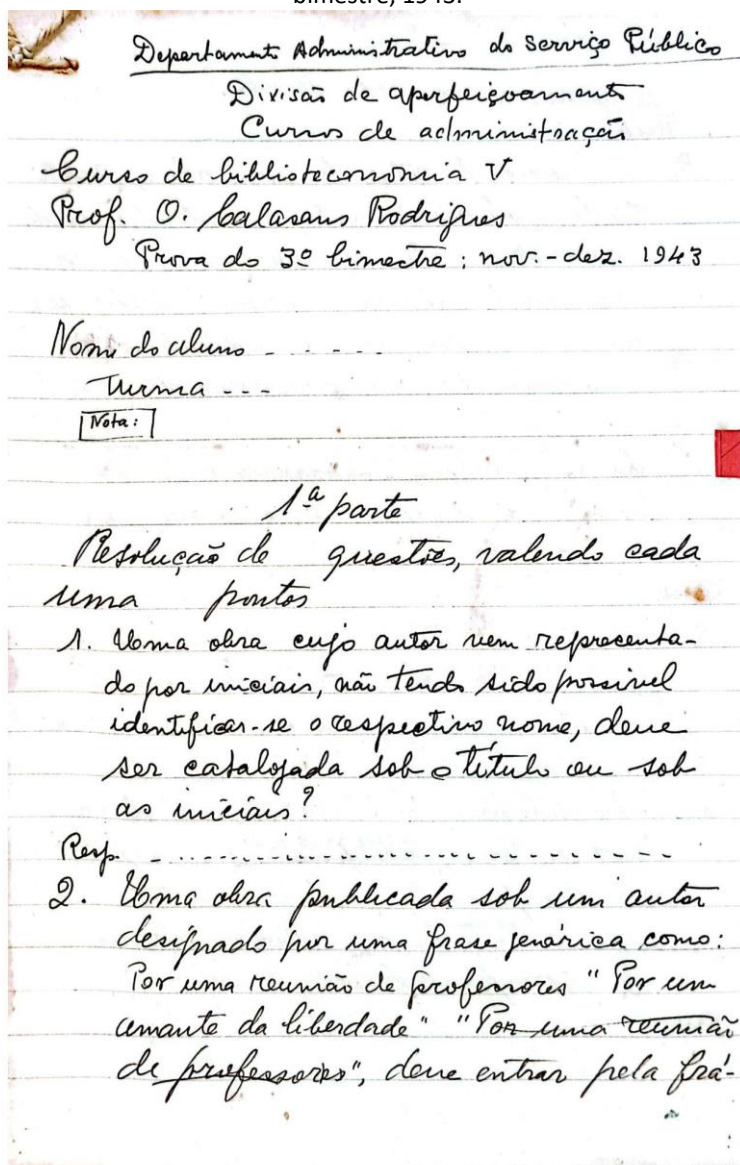 bimestre, 1943.
Departamento Administrativo do Serviço Público
Divisão de aperfeiçoamento
Cursos de administração
Curso de biblioteconomia V
Prof. O. Calasans Rodrigues
Prova do 3º bimestre: nov.-dez. 1943
Nome do aluno - . - . . .
Turma - - -
Nota:
1ª parte
Resolução de questões, valendo cada
uma pontos
1. Uma obra cujo autor vem representa-
do por iniciais, não tendo sido possivel
identificar-se o respectivo nome, deve
ser catalogada sob o título ou sob
as iniciais?
Resp. - . . . . . . . . . . . . . . . . . . .
2. Uma obra publicada sob um autor
designado por uma frase genérica como:
Por uma reunião de professores " Por um
amante da liberdade" "Por uma reunião
de professores", deve entrar pela frá-